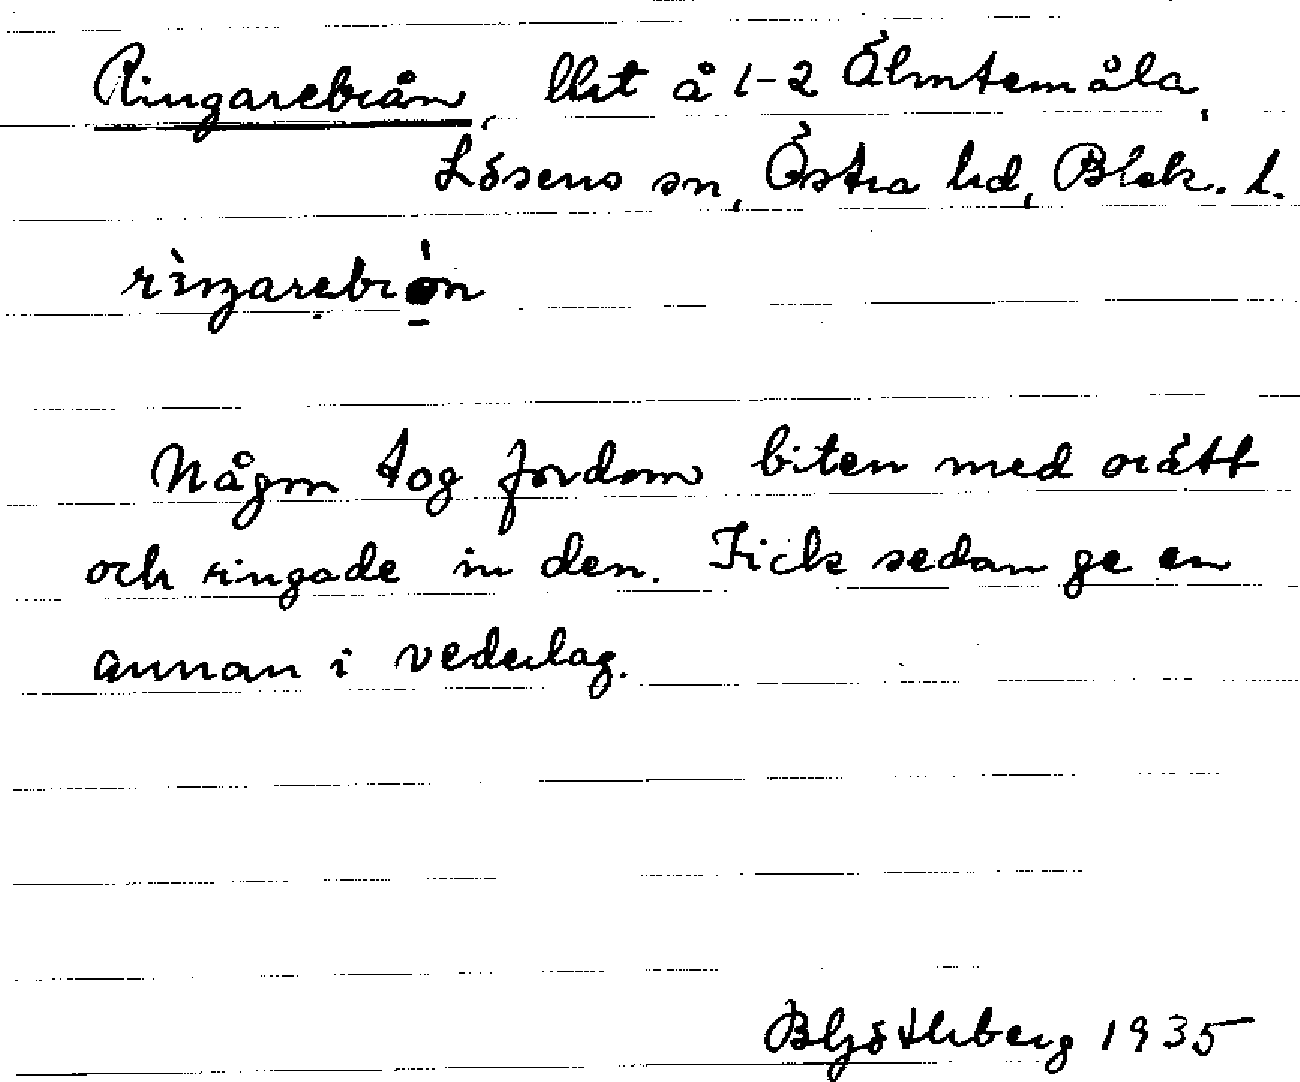 Ringarebrån, llit å 1-2 Älmtemåla,
Lösens sn, Östra hd, Blek. l.
Någon tog fordom biten med orätt
och ringade in den. Fick sedan ge en
annan i vederlag.
1935